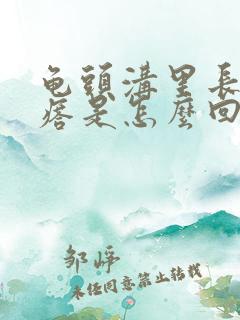 龟頭溝里長
痞是怎麼回
邹峄
未任同意禁止转载